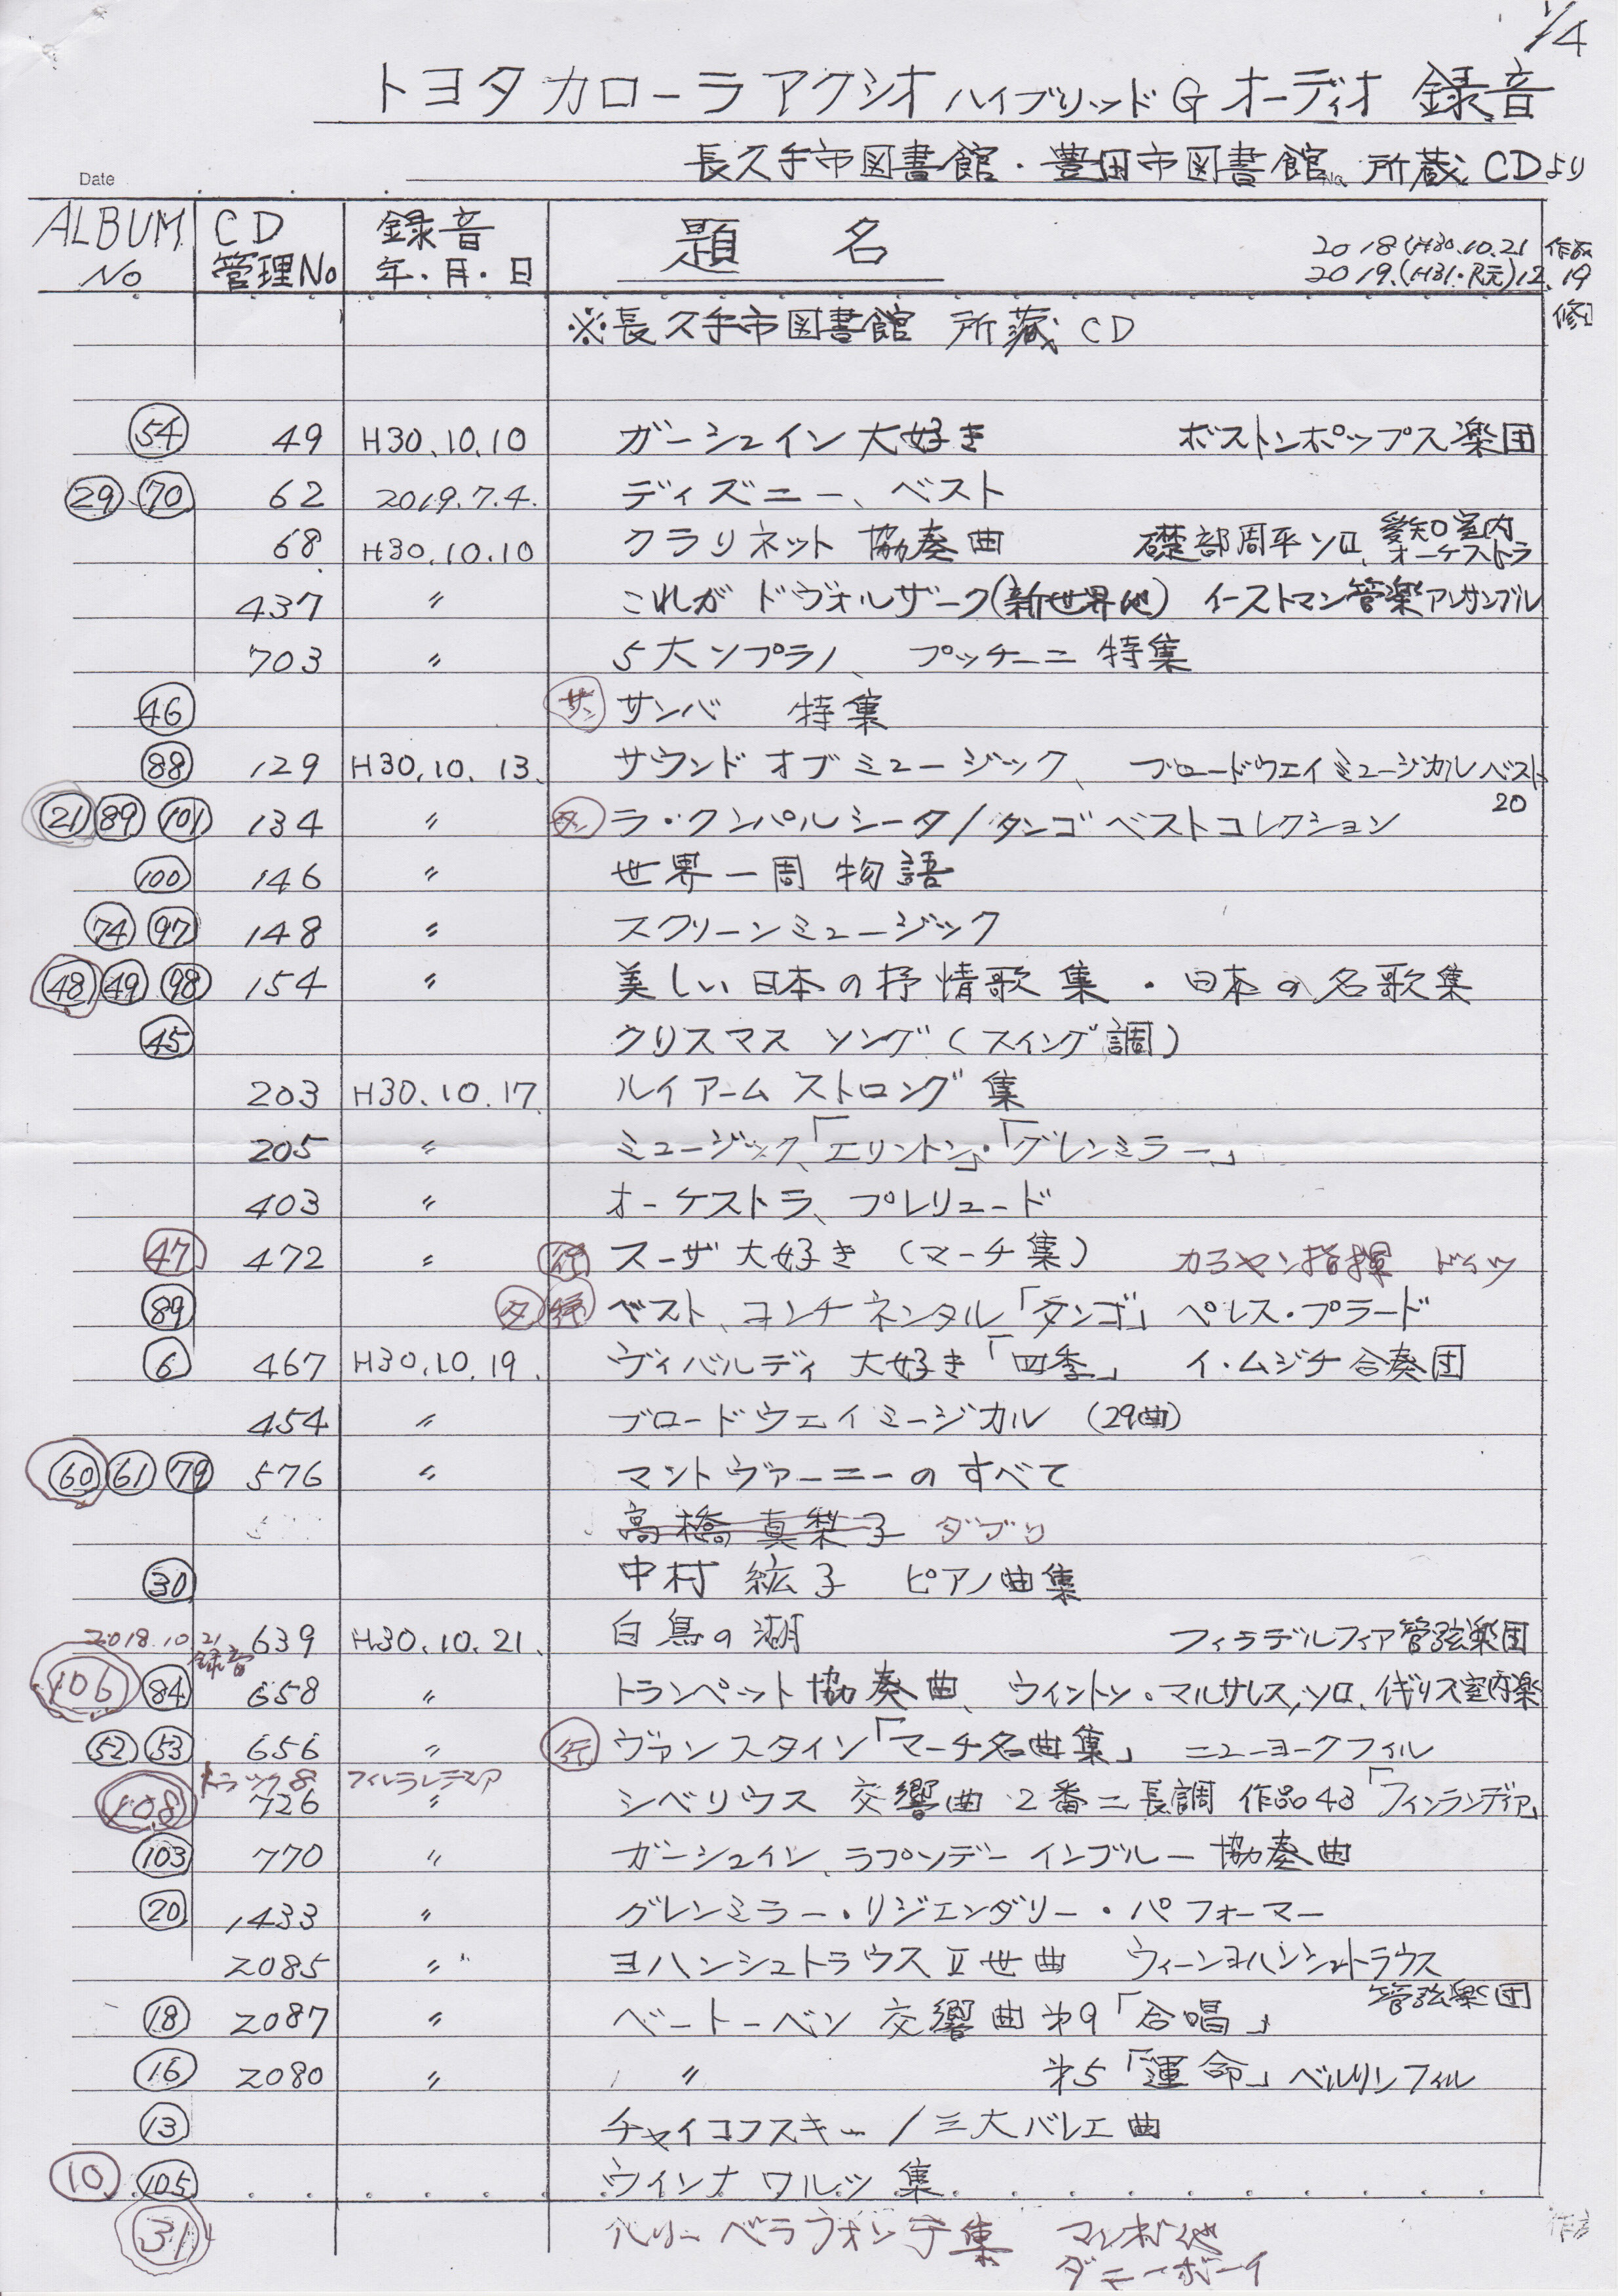 1/4
トヨタカローラアクシオ ハイブリッドG オーディオ 録音
長久手市図書館・豊田市図書館 所蔵 CDより
Date No.
ALBUM No CD管理No 録音年・月・日 題 名 2018(H30.10.21 作成
2019.(H31・R元)12.19 修正
※長久手市図書館 所蔵 CD
54 49 H30.10.10 ガーシュイン 大好き ボストンポップス楽団
29 70 62 2019.7.4. ディズニー、ベスト
68 H30.10.10 クラリネット 協奏曲 礎部周平ソロ、愛知室内オーケストラ
437 〃 これが ドヴォルザーク(新世界他) イーストマン管楽アンサンブル
703 〃 5大ソプラノ、 プッチーニ 特集
46 サン サンバ 特集
88 129 H30.10.13. サウンド オブ ミュージック、 ブロードウェイミュージカルベスト20
21 89 101 134 〃 タン ラ・クンパルシータ/タンゴ ベストコレクション
100 146 〃 世界一周 物語
74 97 148 〃 スクリーンミュージック
48 49 98 154 〃 美しい日本の抒情歌集・日本の名歌集
45 クリスマス ソング(スイング調)
203 H30.10.17. ルイアームストロング集
205 〃 ミュージック、「エリントン」・「グレンミラー」
403 〃 オーケストラ、プレリュード
47 472 〃 行 スーザ 大好き (マーチ集) カラヤン指揮 ドイツ
89 タ ベスト、コンチネンタル「タンゴ」 ペレス・プラード
6 467 H30.10.19. ヴィバルディ 大好き「四季」 イ・ムジチ合奏団
454 〃 ブロードウェイミージカル (29曲)
60 61 79 576 〃 マントヴァーニーの すべて
高橋真梨子 ダブリ
30 中村 紘子 ピアノ曲集
2018.10.21 録音 639 H30.10.21. 白鳥の湖 フィラデルフィア管弦楽団
106 84 658 〃 トランペット協奏曲、ウイントン・マルサレス,ソロ、イギリス室内楽
52 53 656 〃 行 ヴァンスタイン「マーチ名曲集」 ニューヨークフィル
トラック8
108 726 〃 シベリウス 交響曲 2番ニ長調 作品43「フィンランディア」
103 770 〃 ガーシュイン、ラプソデー インブルー 協奏曲
20 1433 〃 グレンミラー・リジェンダリー・パフォーマー
2085 〃 ヨハンシュトラウスⅡ世曲 ウィーンヨハンシュトラウス管弦楽団
18 2087 〃 ベートーベン 交響曲 第9「合唱」
16 2080 〃 〃 第5「運命」ベルリンフィル
13 チャイコフスキー/三大バレエ曲
10 105 ウインナ ワルツ 集
31 ハリーベラフォンテ集 マンボ他
ダニーボーイ